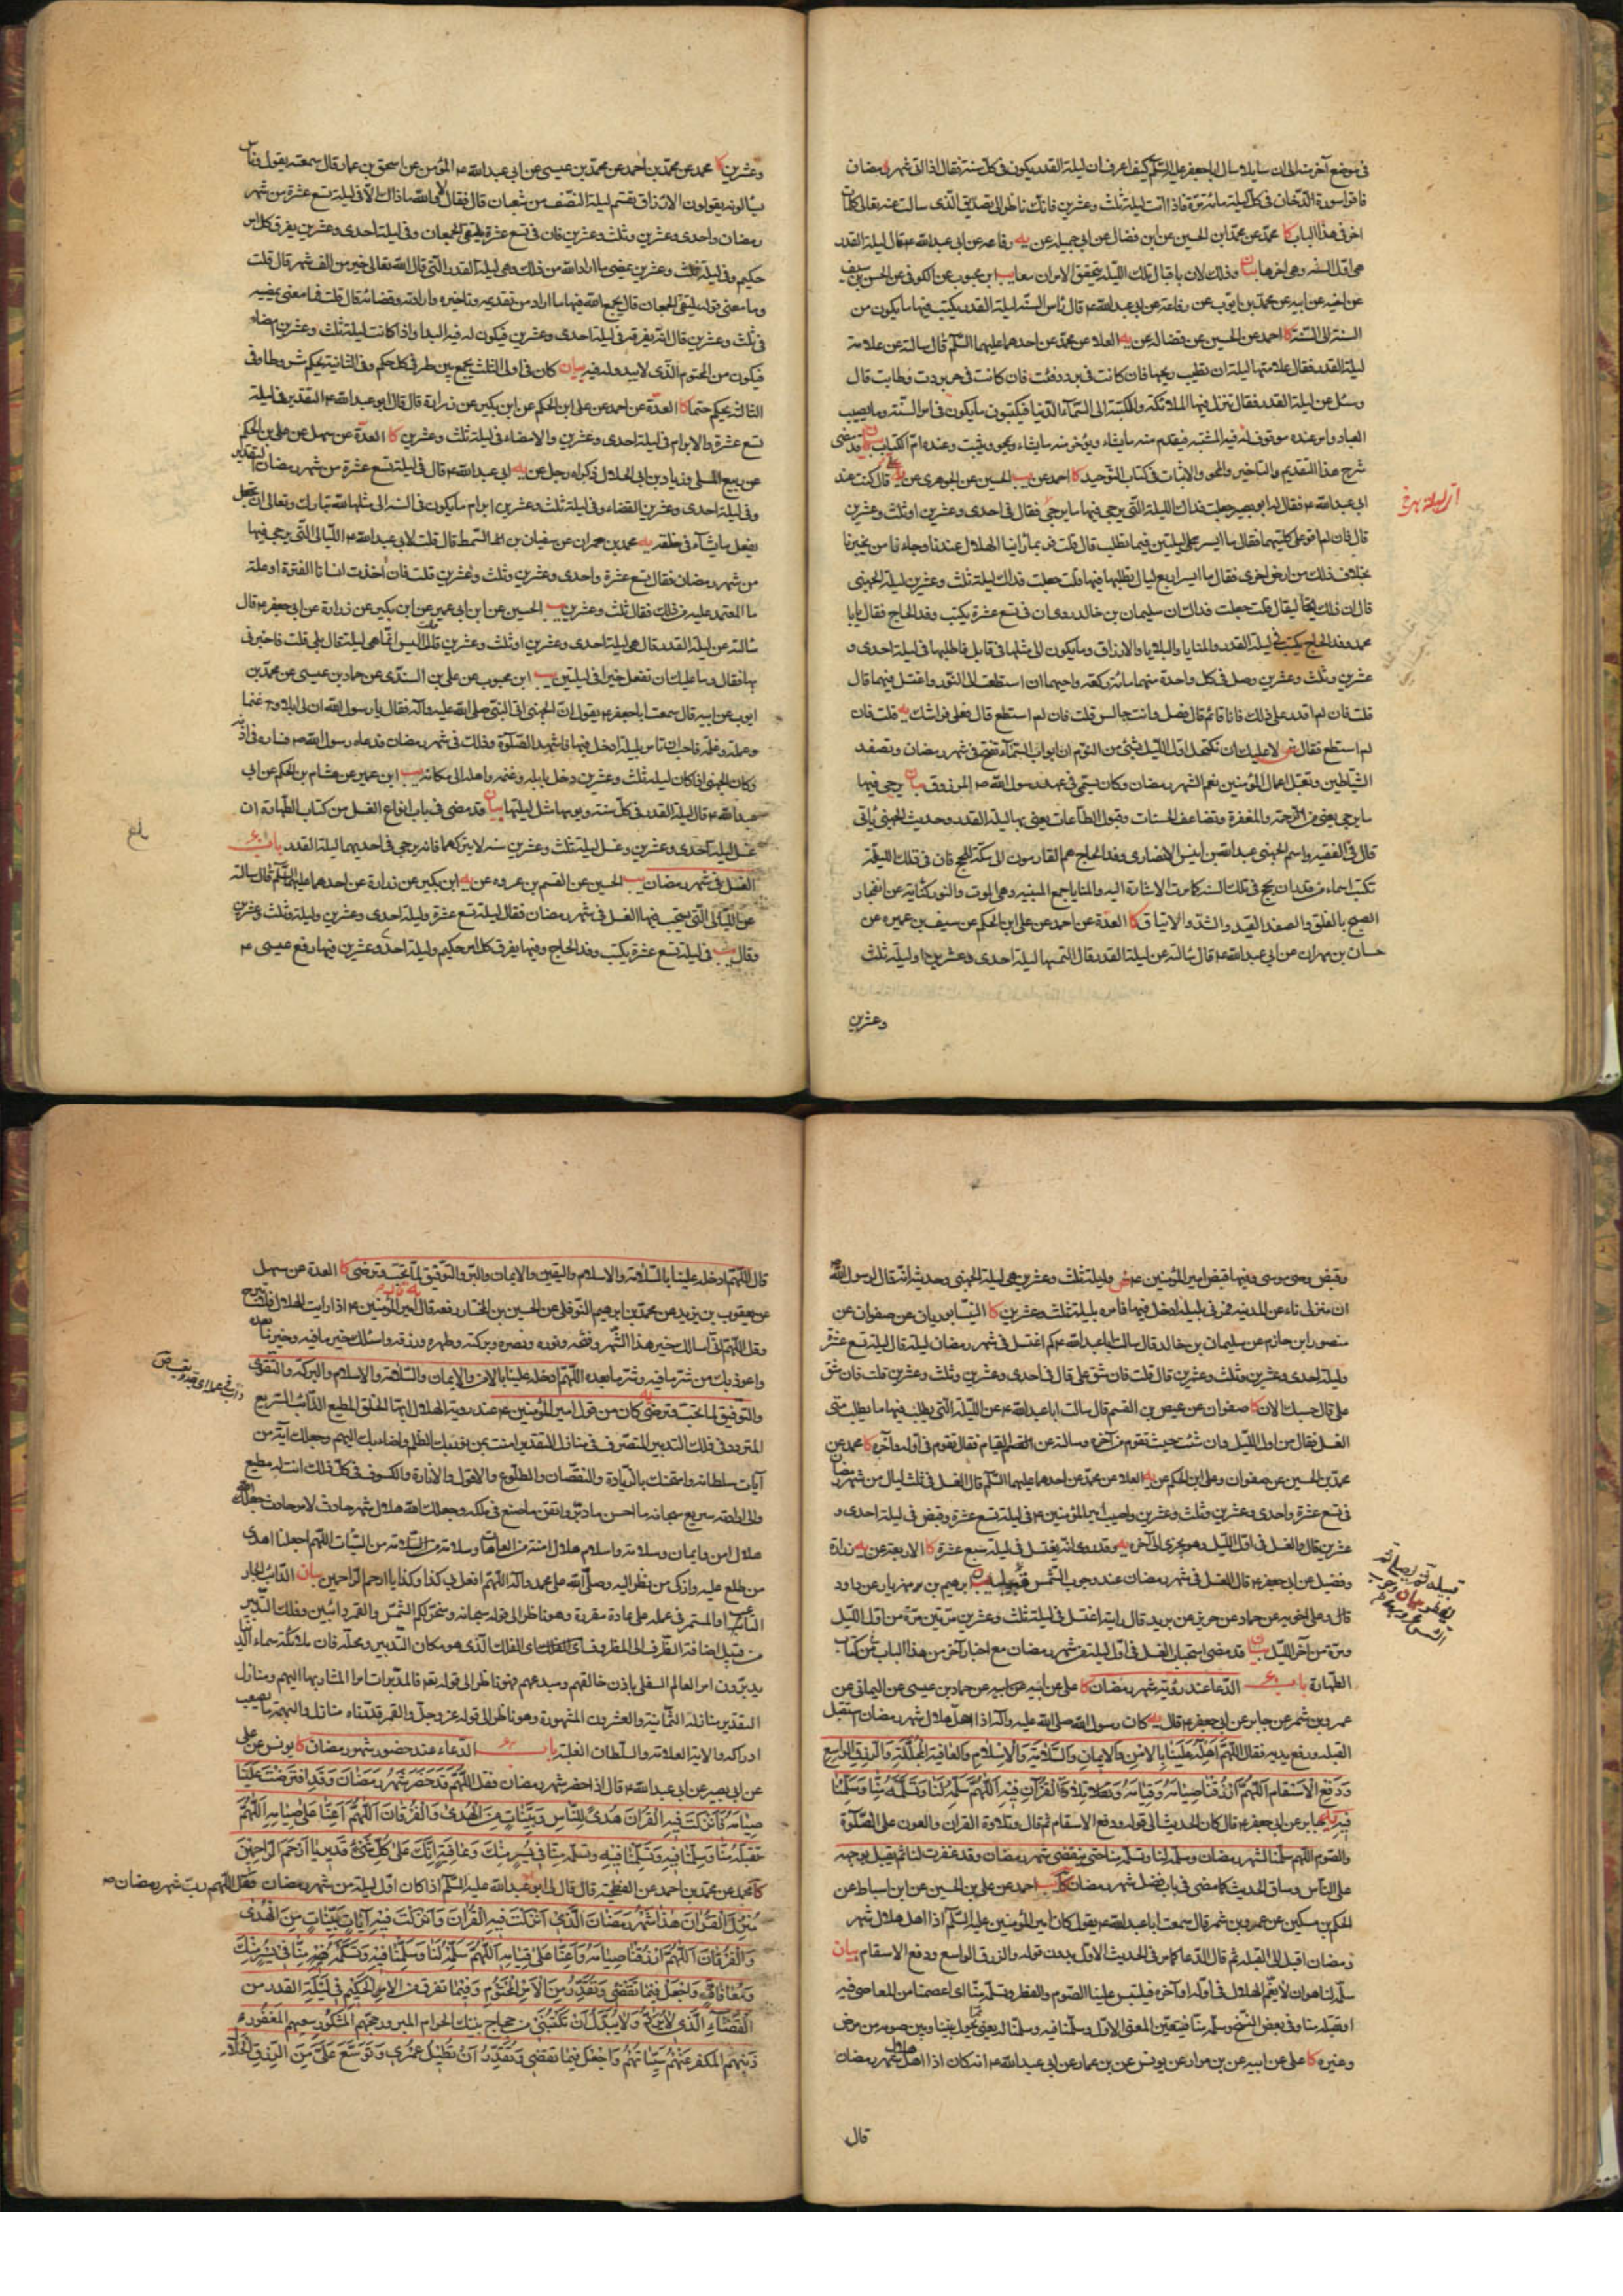 في موضع آخر منه الى ان سايلا سال ابا جعفر عليه السلم كيف اعرف ان ليلة القدر يكون في كل سنة فقال اذا اتى شهر رمضان
فاقرا سورة الدخان في كل ليلة مائة مرة فاذا اتت ليلة ثلث وعشرين فانك ناظر الى تصديق الذى سالت عنه
اخر في هذا الباب كا محمد عن محمد ابن الحسين عن ابن فضال عن ابى جميله عن يه رفاعه عن ابى عبدالله ع قال ليلة القدر
هى اول السنه وهى اخرها بيان وذلك لان باقبال تلك الليلة يتحقق الامران معا يب ابن محبوب عن الكوفى عن الحسن بن سيف
عن اخيه عن ابيه عن محمد بن ايوب عن رفاعة عن ابى عبدالله ع قال راس السنه ليلة القدر يكتب فيها ما يكون من
السنة الى السنة كا احمد عن الحسين عن فضاله عن يه العلا عن محمد عن احدهما عليهما السلم قال سالته عن علامة
ليلة القدر فقال علامتها ليلة ان تطيب ريحها فان كانت في برد دفئت فان كانت في حر بردت وطابت قال
وسئل عن ليلة القدر فقال تنزل فيها الملائكة والكتبة الى السماء الدنيا فيكتبون ما يكون في امر السنة وما يصيب
العباد وامر عنده موقوف له فيه المشيه فيقدم منه ما يشاء ويؤخر منه ما يشاء ويمحو ويثبت وعنده ام الكتاب بيان قد مضى
شرح هذا التقديم والتاخير والمحو والاثبات في كتاب التوحيد كا احمد عن يب الحسين عن الجوهرى عن يه على قال كنت عند
ابى عبدالله ع فقال له ابو بصير جعلت فداك الليلة التى يرجى فيها ما يرجى فقال في احدى وعشرين او ثلث وعشرين
قال فان لم اقو على كلتيهما فقال ما ايسر ليلتين فيما تطلب قال قلت فربما راينا الهلال عندنا وجاءنا من يخبرنا
بخلاف ذلك من ارض اخرى فقال ما ايسر اربع ليال تطلبها فيها قلت جعلت فداك ليلة ثلث وعشرين ليلة الجهنى
قال ان ذلك ليقال قلت جعلت فداك ان سليمان بن خالد روى ان في تسع عشرة يكتب وفد الحاج فقال يا با
محمد وفد الحاج يكتب في ليلة القدر والمنايا والبلايا والارزاق وما يكون الى مثلها في قابل فاطلبها في ليلة احدى و
عشرين وثلث وعشرين وصل في كل واحدة منهما مائة ركعة واحيهما ان استطعت الى النور واغتسل فيهما قال
قلت فان لم اقدر على ذلك وانا قائم قال فصل وانت جالس قلت فان لم استطع قال فعلى فراشك يه قلت فان
لم استطع فقال لا عليك ان تكتحل اول الليل بشئ من النوم ان ابواب السماء تفتح في شهر رمضان وتصفد
الشياطين وتقبل اعمال المؤمنين نعم الشهر رمضان وكان يسمى في عهد رسول الله ص المرزوق بيان يرجى فيها
ما يرجى يعنى من الرحمة والمغفرة وتضاعف الحسنات وقبول الطاعات يعنى بها ليلة القدر وحديث الجهنى ياتى
قال في الفقيه واسم الجهنى عبدالله بن انيس الانصارى وفد الحاج هم القادمون الى مكة للحج فان في تلك الليلة
تكتب اسماء من قدر ان يحج في تلك السنه كما مرت الاشارة اليه والمنايا جمع المنيه وهى الموت والنور كناية عن انفجار
الصبح بالفلق والصفد القيد والشد والايثاق كا العدة عن احمد عن على ابن الحكم عن سيف بن عميره عن
حسان بن مهران عن ابى عبدالله ع قال سالته عن ليلة القدر فقال التمسها ليلة احدى وعشرين او ليلة ثلث
وعشرين
وعشرين كا محمد عن محمد بن احمد عن محمد بن عيسى عن ابى عبدالله المؤمن عن اسحق بن عمار قال سمعته يقول وناس
يسالونه يقولون الارزاق تقسم ليلة النصف من شعبان قال فقال لا والله ما ذاك الا في ليلة تسع عشرة من شهر
رمضان واحدى وعشرين وثلث وعشرين فان في تسع عشرة يلتقى الجمعان وفي ليلة احدى وعشرين يفرق كل امر
حكيم وفي ليلة ثلث وعشرين يمضى ما اراد الله من ذلك وهى ليلة القدر التى قال الله تعالى خير من الف شهر قال قلت
وما معنى قوله يلتقى الجمعان قال يجمع الله فيها ما اراد من تقديمه وتاخيره وارادته وقضائه قال قلت فما معنى يمضيه
في ثلث وعشرين قال انه يفرقه في ليلة احدى وعشرين فيكون له فيه البدا واذا كانت ليلة ثلث وعشرين امضاه
فيكون من المحتوم الذى لا يبدو له فيه بيان كان في اولى الثلث يجمع بين طرفى كل حكم وفي الثانية يحكم مشروطا وفي
الثالثة يحكم حتما كا العدة عن احمد عن على ابن الحكم عن ابن بكير عن زرارة قال قال ابو عبدالله ع التقدير في ليلة
تسع عشرة والابرام في ليلة احدى وعشرين والامضاء في ليلة ثلث وعشرين كا العدة عن سهل عن على بن الحكم
عن ربيع المسلى وزياد بن ابى الحلال ذكراه عن رجل عن يه ابى عبدالله ع قال في ليلة تسع عشرة من شهر رمضان التقدير
وفي ليلة احدى وعشرين القضاء وفي ليلة ثلث وعشرين ابرام ما يكون في السنه الى مثلها لله تبارك وتعالى ان يفعل
يفعل ما يشاء في خلقه يه محمد بن حمران عن سفيان بن السمط قال قلت لابى عبدالله ع الليالى التى يرجى فيها
من شهر رمضان فقال تسع عشرة واحدى وعشرين وثلث وعشرين قلت فان اخذت انسانا الفترة او علة
ما المعتمد عليه من ذلك فقال ثلث وعشرين يب الحسين عن ابن ابى عمير عن ابن بكير عن زرارة عن ابى جعفر ع قال
سالته عن ليلة القدر قال هى ليلة احدى وعشرين او ثلث وعشرين قلت اليس انما هى ليلة قال بلى قلت فاخبرنى
بها فقال وما عليك ان تفعل خيرا في ليلتين يب ابن محبوب عن على بن السندى عن حماد بن عيسى عن محمد بن
ايوب عن ابيه قال سمعت ابا جعفر ع يقول ان الجهنى اتى النبى صلى الله عليه واله فقال يا رسول الله ان لى ابلا وغنما
وعملة وغلمة فاحب ان تامرنى بليلة ادخل فيها فاشهد الصلوة وذلك في شهر رمضان فدعاه رسول الله ص فساره في اذنه
وكان الجهنى اذا كان ليلة ثلث وعشرين دخل بابله وغنمه واهله الى مكانه يب ابن عمير عن هشام بن الحكم عن ابى
عبدالله ع قال ليلة القدر في كل سنه ويومها مثل ليلتها بيان وقد مضى في باب انواع الغسل من كتاب الطهارة ان
غسل ليلة احدى وعشرين وغسل ليلة ثلث وعشرين سنه لا يتركهما فانه يرجى في احديهما ليلة القدر باب
الغسل في شهر رمضان يب الحسين عن القسم بن عروه عن يه ابن بكير عن زرارة عن احدهما عليهما السلم قال سالته
عن الليالى التى يستحب فيها الغسل في شهر رمضان فقال ليلة تسع عشرة وليلة احدى وعشرين وليلة وثلث وعشرين
وقال يب في ليلة تسع عشرة يكتب وفد الحاج وفيها يفرق كل امر حكيم وليلة احدى وعشرين فيها رفع عيسى ع
وقبض وصى موسى وفيها قبض امير المؤمنين ع وليلة ثلث وعشرين هى ليلة الجهنى وحديثه انه قال لرسول الله
ان منزلى ناء عن المدينه فمرنى بليلة ادخل فيها فامره بليلة ثلث وعشرين كا النيسابوريان عن صفوان عن
منصور ابن حازم عن سليمان بن خالد قال سالت ابا عبدالله ع كم اغتسل في شهر رمضان ليلة قال ليلة تسع عشرة
وليلة احدى وعشرين وثلث وعشرين قال قلت فان شق على قال في احدى وعشرين وثلث وعشرين قلت فان شق
على قال حسبك الان كا صفوان عن عيص بن القسم قال سالت ابا عبدالله ع عن الليلة التى يطلب فيها ما يطلب متى
الغسل فقال من اول الليل وان شئت حيث تقوم من آخره وسالته عن القيام فقال تقوم في اوله وآخره كا محمد عن
محمد بن الحسين عن صفوان وعلى ابن الحكم عن يه العلا عن محمد عن احدهما عليهما السلم قال الغسل في ثلث ليال من شهر رمضان
في تسع عشرة واحدى وعشرين وثلث وعشرين واصيب امير المؤمنين ع في ليلة تسع عشرة وقبض في ليلة احدى و
عشرين قال والغسل في اول الليل وهو يجزى الى آخره يه وقد روى انه يغتسل في ليلة سبع عشرة كا الاربعة عن يه زرارة
وفضيل عن ابى جعفر ع قال الغسل في شهر رمضان عند وجوب الشمس قبيله يب ابرهيم بن مهزيار عن داود
قال وعلى اخويه عن حماد عن حريز عن بريد قال رايته اغتسل في ليلة ثلث وعشرين مرتين مرة من اول الليل
ومرة من آخر الليل بيان قد مضى استحباب الغسل في اول ليلة من شهر رمضان مع اخبار آخر من هذا الباب من كتاب
الطهارة باب الدعا عند رؤية شهر رمضان كا على عن ابيه عن حماد بن عيسى عن اليمانى عن
عمرو بن شمر عن جابر عن ابى جعفر ع قال يه كان رسول الله صلى الله عليه واله اذا اهل هلال شهر رمضان استقبل
القبله ورفع يديه فقال اللهم اهله علينا بالامن والايمان والسلامة والاسلام والعافية المجللة والرزق الواسع
ودفع الاسقام اللهم ارزقنا صيامه وقيامه وتلاوة القرآن فيه اللهم سلمه لنا وتسلمه منا وسلمنا
فيه يه جابر عن ابى جعفر ع قال كان الحديث الى قوله ودفع الاسقام ثم قال وتلاوة القران والعون على الصلوة
والصوم اللهم سلمنا لشهر رمضان وسلمه لنا وتسلمه منا حتى ينقضى شهر رمضان وقد غفرت لنا ثم يقبل بوجهه
على الناس وساق الحديث كما مضى في باب فضل شهر رمضان كا يب احمد عن على بن الحسين عن ابن اسباط عن
الحكم بن مسكين عن عمرو بن شمر قال سمعت ابا عبدالله ع يقول كان امير المؤمنين عليه السلم اذا اهل هلال شهر
رمضان اقبل الى القبله ثم قال الدعا كما مر في الحديث الاول بدون قوله والرزق الواسع ودفع الاسقام بيان
سلمه لنا هو ان لا يغم الهلال في اوله او آخره فيلتبس علينا الصوم والفطر وتسلمه منا اى اعصمنا من المعاصى فيه
او تقبله منا وفي بعض النسخ وسلمه منا فيتعين المعنى الاول وسلمنا فيه وسلمنا له يعنى لا يحول بيننا وبين صومه من مرض
وغيره كا على عن ابيه عن بن مرار عن يونس عن بن عمار عن ابى عبدالله ع انه كان اذا اهل هلال شهر رمضان
قال
قال اللهم ادخله علينا بالسلامة والاسلام واليقين والايمان والبر والتوفيق لما تحب وترضى كا العدة عن سهل
عن يعقوب بن يزيد عن محمد بن ابرهيم النوفلى عن الحسين بن المختار رفعه قال قال امير المؤمنين ع اذا رايت الهلال فلا تبرح
وقل اللهم انى اسالك خير هذا الشهر وفتحه ونوره ونصره وبركته وطهوره ورزقه واسئلك خير ما فيه وخير ما بعده
واعوذ بك من شر ما فيه وشر ما بعده اللهم ادخله علينا بالامن والايمان والسلامة والاسلام والبركة والتقوى
والتوفيق لما تحب وترضى يه كان من قول امير المؤمنين ع عند رؤية الهلال ايها الخلق المطيع الدائب السريع
المتردد في فلك التدبير المتصرف في منازل التقدير امنت بمن نور بك الظلم واضاء بك البهم وجعلك آية من
آيات سلطانه وامتهنك بالزيادة والنقصان والطلوع والافول والانارة والكسوف في كل ذلك انت له مطيع
والى ارادته سريع سبحانه ما احسن ما دبر واتقن ما صنع في ملكه وجعلك الله هلال شهر حادث لامر حادث جعلك الله
هلال امن وايمان وسلامة واسلام هلال امنة من العاهات وسلامة من السيئات اللهم اجعلنا اهدى
من طلع عليه وازكى من نظر اليه وصلى الله على محمد وآله اللهم افعل بى كذا وكذا يا ارحم الراحمين بيان الدائب الجار
المستمر في عمله على عادة مقررة وهو ناظر الى قوله سبحانه وسخر لكم الشمس والقمر دائبين وفلك التدبير
من قبيل اضافة الظرف الى المظروف اى الفلك الذى هو مكان التدبير ومحله فان ملائكة سماء الدنيا
يدبرون امر العالم السفلى باذن خالقهم ومبدعهم وهو ناظر الى قوله تعو فالمدبرات امرا المشار بها اليهم ومنازل
التقدير منازله الثمانية والعشرون المشهورة وهو ناظر الى قوله عز وجل والقمر قدرناه منازل والبهمة ما يصعب
ادراكه والاية العلامة والسلطان الغلبة باب الدعاء عند حضور شهر رمضان كا يونس عن على
عن ابى بصير عن ابى عبدالله ع قال اذا حضر شهر رمضان فقل اللهم قد حضر شهر رمضان وقد افترضت علينا
صيامه وانزلت فيه القران هدى للناس وبينات من الهدى والفرقان اللهم اعنا على صيامه اللهم
تقبله منا وسلمنا فيه وتسلمنا فيه وتسلمه منا في يسر منك وعافية انك على كل شئ قدير يا ارحم الراحمين
كا محمد عن محمد بن احمد عن الفطحية قال قال لى ابو عبدالله عليه السلم اذا كان اول ليلة من شهر رمضان فقل اللهم رب شهر رمضان
منزل القران هذا شهر رمضان الذى انزلت فيه القران وانزلت فيه آيات بينات من الهدى
والفرقان اللهم ارزقنا صيامه واعنا على قيامه اللهم سلمه لنا وسلمنا فيه وتسلمه منا في يسر منك
ومعافاة واجعل فيما تقضى وتقدر من الامر المحتوم وفيما تفرق من الامر الحكيم في ليلة القدر من
القضاء الذى لا يرد ولا يبدل ان تكتبنى من حجاج بيتك الحرام المبرور حجهم المشكور سعيهم المغفور
ذنبهم المكفر عنهم سيئاتهم واجعل فيما تقضى وتقدر ان تطيل عمرى وتوسع على من الرزق الحلال